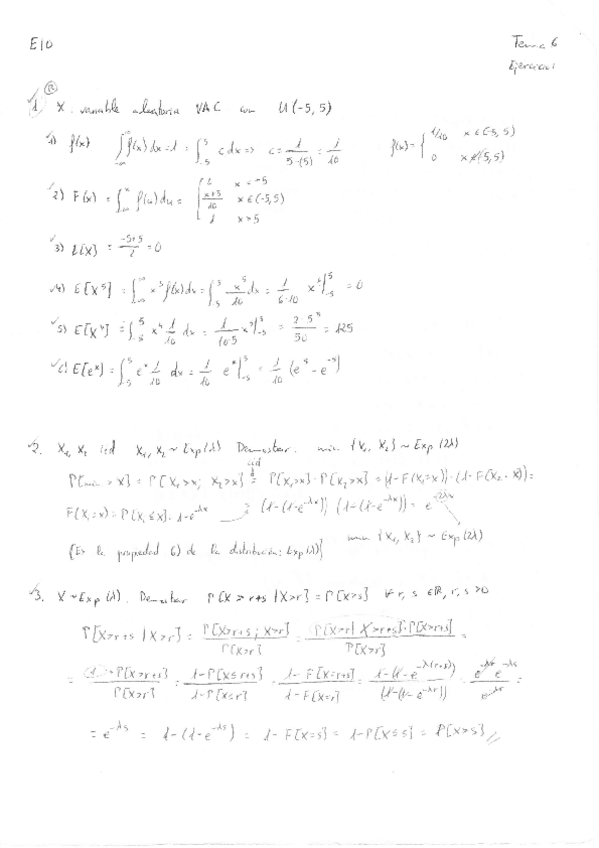 E10
Tema 6
Ejercicios
1. X variable aleatoria VAC con U(-5, 5)
1) f(x) ∫f(x)dx=1=∫_{-5}^{5} c dx => c = 1/(5-(-5)) = 1/10 f(x) = { 1/10 x∈(-5,5)
0 x∉(-5,5)
2) F(x) = ∫_{-∞}^{x} f(u)du = { x<-5
(x+5)/10 x∈(-5,5)
1 x>5
3) E[X] = (-5+5)/2 = 0
4) E[X^5] = ∫_{-∞}^{∞} x^5 f(x)dx = ∫_{-5}^{5} x^5/10 dx = 1/(6·10) x^6|_{-5}^{5} = 0
5) E[X^4] = ∫_{-5}^{5} x^4 1/10 dx = 1/(10·5) x^5|_{-5}^{5} = 2·5^5/50 = 125
6) E[e^x] = ∫_{-5}^{5} e^x 1/10 dx = 1/10 e^x|_{-5}^{5} = 1/10 (e^5 - e^{-5})
2. X₁, X₂ iid X₁, X₂ ~ Exp(λ) Demostrar: min {X₁, X₂} ~ Exp(2λ)
iid
P[min > x] = P[X₁>x; X₂>x] = P[X₁>x]·P[X₂>x] = (1-F(X₁=x))·(1-F(X₂=x)) =
F(X₁=x) = P[X₁≤x] = 1-e^{-λx} = (1-(1-e^{-λx}))(1-(1-e^{-λx})) = e^{-2λx}
min {X₁, X₂} ~ Exp(2λ)
{Es la propiedad 6) de la distribución: Exp(λ)}
3. X ~ Exp(λ). Demostrar P[X > r+s | X>r] = P[X>s] ∀ r, s ∈ℝ, r, s >0
P[X>r+s | X>r] = P[X>r+s; X>r]/P[X>r] = P[X>r | X>r+s]·P[X>r+s]/P[X>r] =
= 1·P[X>r+s]/P[X>r] = 1-P[X≤r+s]/1-P[X≤r] = 1-F[X=r+s]/1-F[X=r] = 1-(1-e^{-λ(r+s)})/(1-(1-e^{-λr})) = e^{-λr} e^{-λs}/e^{-λr} =
= e^{-λs} = 1-(1-e^{-λs}) = 1-F[X=s] = 1-P[X≤s] = P[X>s] //